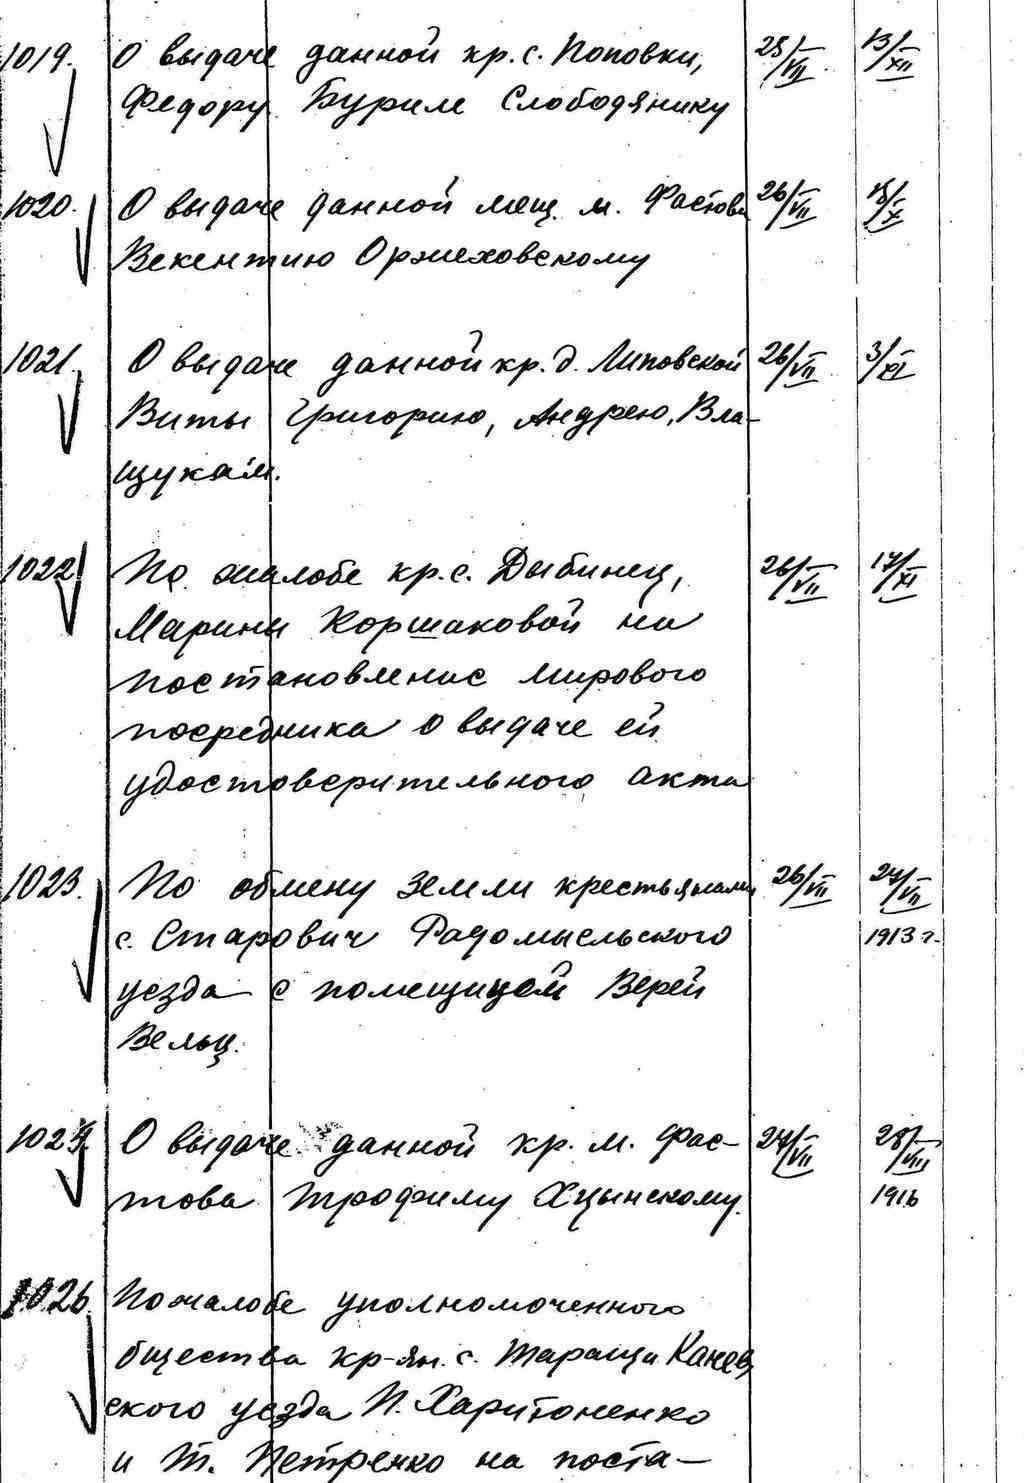 1019. О выдаче данной кр. с. Поповки, 25/VII 13/XII
Федору Буриле Слободянику
1020. О выдаче данной мещ. м. Фастова 26/VII 15/X
Векентию Оржеховскому
1021. О выдаче данной кр. д. Липовской 26/VII 3/XI
Виты Григорию, Андрею, Вла-
щукам.
1022 По жалобе кр. с. Дыбинец, 26/VII 17/XI
Марины Коршаковой на
постановление мирового
посредника о выдаче ей
удостоверительного акта
1023. По обмену земли крестьянами 26/VII 24/VII
с. Старович Радомысльского 1913 г.
уезда с помещицей Верей
Вельц.
1024. О выдаче данной кр. м. Фас- 24/VII 28/VIII
това Трофиму Хцынскому. 1916
1026. По жалобе уполномоченного
бщества кр-ян. с. Таращи Канев
ского уезда И. Харитоненко
и Т. Петренко на поста-